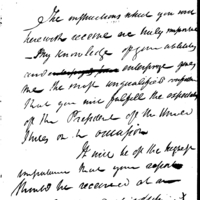 The instructions which you will
herewith receive are truly important
My knowledge of your activity
and enterprise gives
me the most unqualified
that you will fulfill the expectations
of the President of the United
States on the occasion
It will be of the highest
importance that your
should be received at an